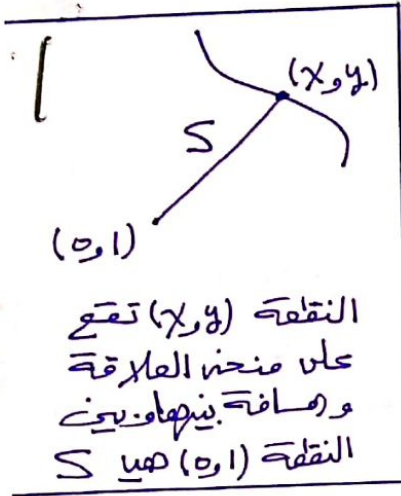 (x و y)
S
(0 و 1)
النقطة (x و y) تقع
على منحنى العلاقة
ومسافة بينها وبين
النقطة (0 و 1) هي S